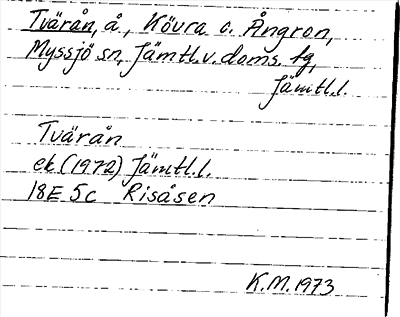 Tvärån, å, Kövra o. Ångron,
Myssjö sn, Jämtl.v.doms. fg,
Jämtl.l.
Tvärån
ek (1972) Jämtl.l.
18E 5c Risåsen
K.M. 1973